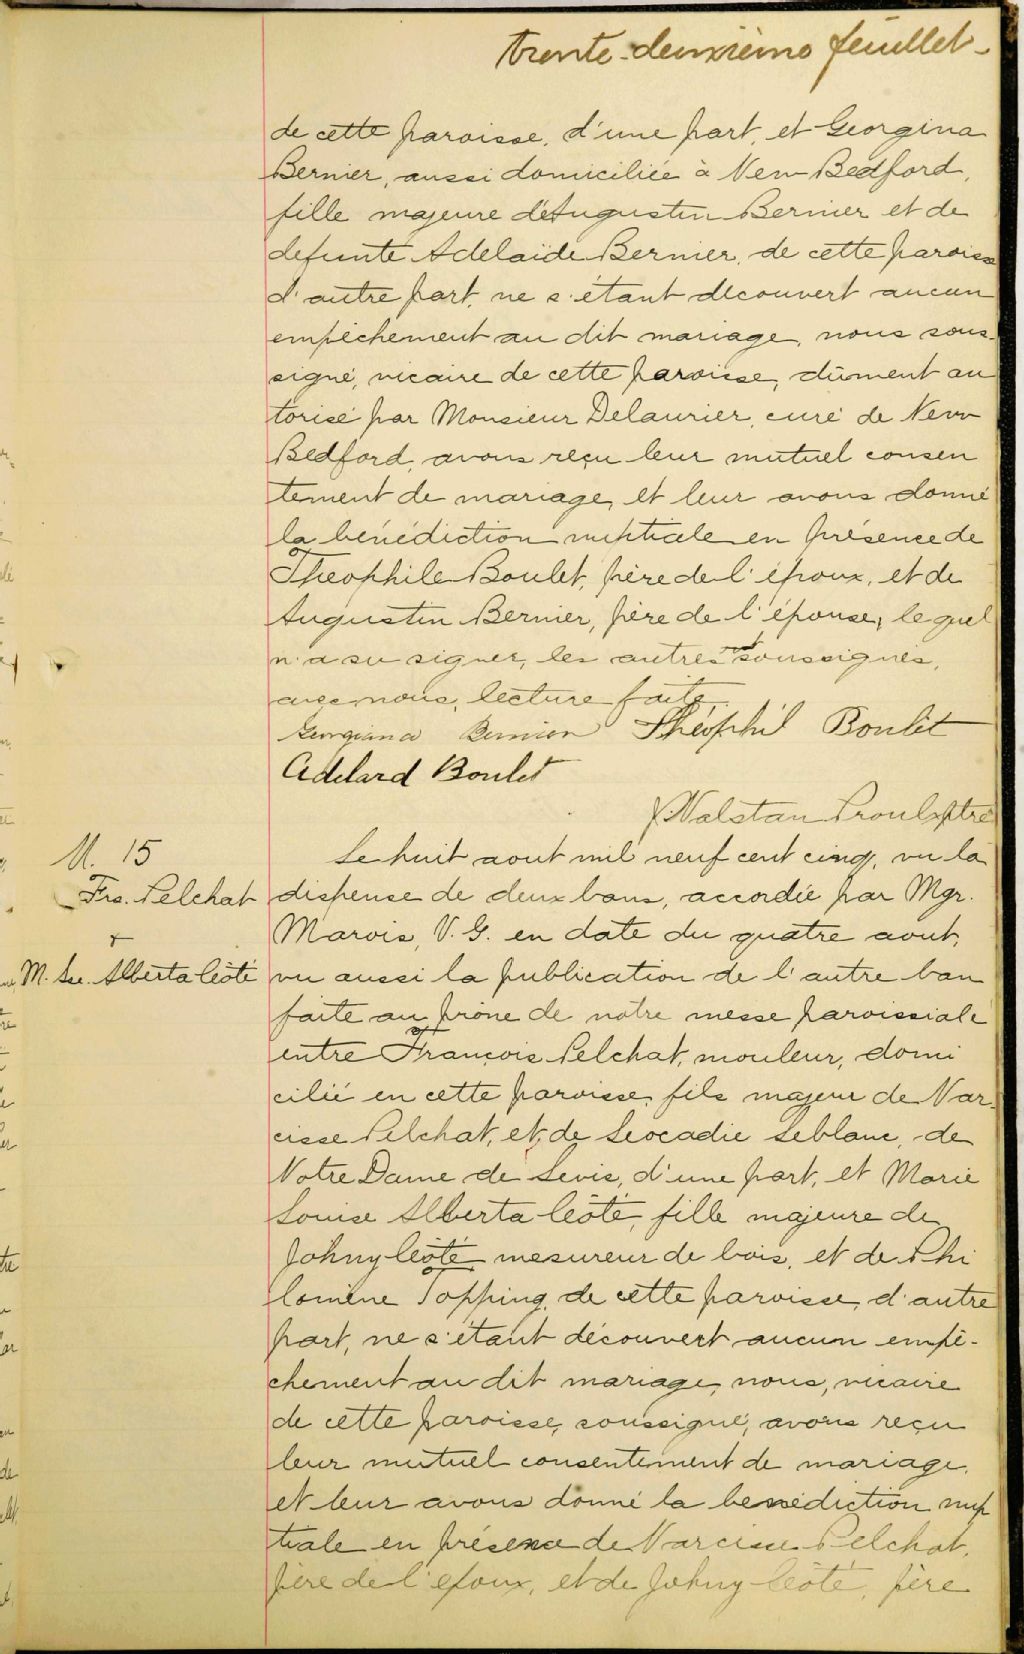 trente-deuxième feuillet-
de cette paroisse, d'une part, et Georgina
Bernier, aussi domiciliée à New-Bedford,
fille majeure d'Augustin Bernier et de
defunte Adelaïde Bernier, de cette paroisse
d'autre part, ne s'étant découvert aucun
empêchement au dit mariage, nous sous-
signé, vicaire de cette paroisse, dûment au
torisé par Monsieur Delaurier, curé de New
Bedford, avons reçu leur mutuel consen
tement de mariage, et leur avons donné
la bénédiction nuptiale en présence de
Théophile Boulet, père de l'époux, et de
Augustin Bernier, père de l'épouse, lequel
n'a su signer, les autres ont soussignés,
avec nous, lecture faite.
Georgiana Bernier Théophil Boulet
Adelard Boulet
Walstan Proulx ptre
M. 15
Frs. Pelchat
+
M. Lse. Alberta Côté
Le huit aout mil neuf cent cinq, vu la
dispense de deux bans, accordée par Mgr.
Marois, V. G. en date du quatre aout,
vu aussi la publication de l'autre ban
faite au prône de notre messe paroissiale
entre François Pelchat, mouleur, domi
cilié en cette paroisse, fils majeur de Nar-
cisse Pelchat, et de Leocadie Leblanc, de
Notre Dame de Levis, d'une part, et Marie
Louise Alberta Côté, fille majeure de
Johny Côté mesureur de bois, et de Phi
lomène Topping, de cette paroisse, d'autre
part, ne s'étant découvert aucun empê-
chement au dit mariage, nous, vicaire
de cette paroisse, soussigné, avons reçu
leur mutuel consentement de mariage,
et leur avons donné la benédiction nup
tiale en présence de Narcisse Pelchat,
père de l'epoux, et de Johny Côté, père